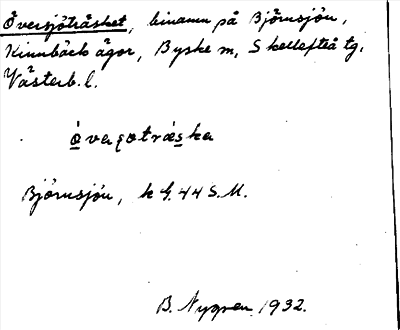 Översjöträsket, binamn på Björnsjön,
Kinnbäck ägor, Byske sn, Skellefteå tg.
Västerb. l.
Björnsjön, k G. 44 S.M.
B. Nygren 1932.